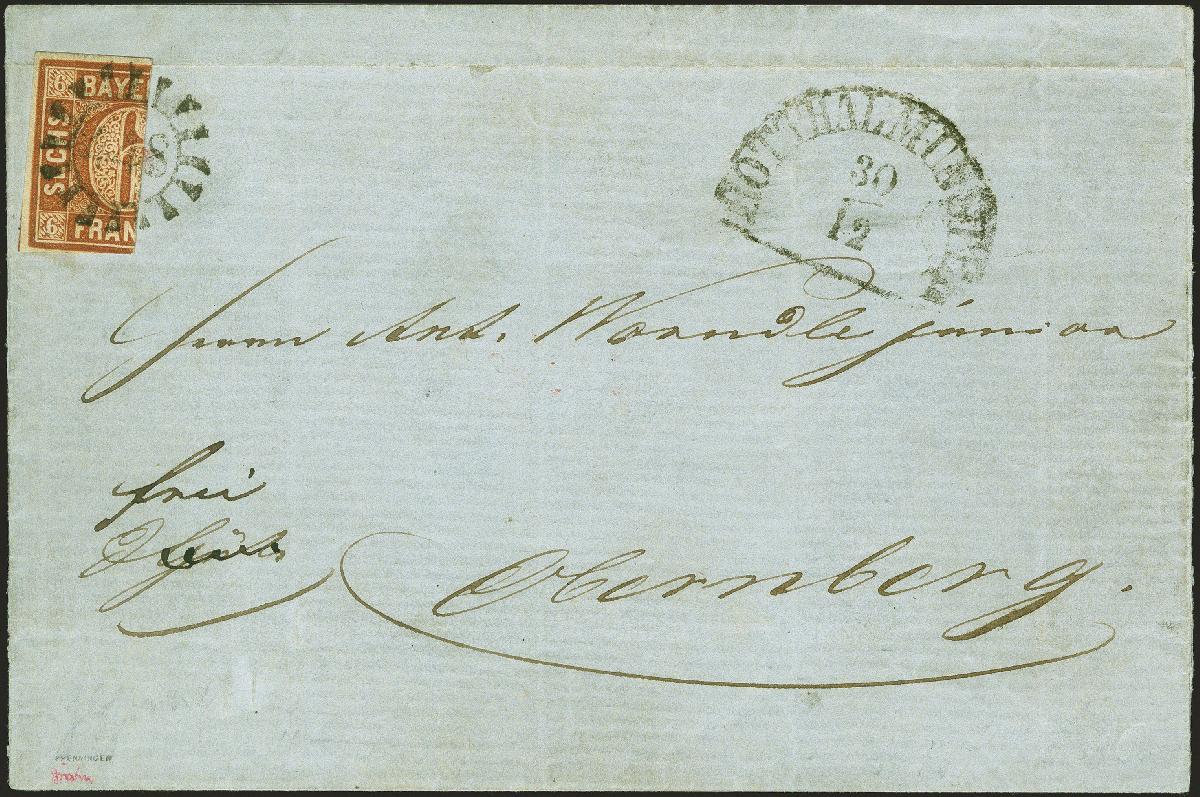 6 BAYE
SECHS
6 FRAN
ROTTHALMÜNSTER
30
12
Herrn Ant. Woerndle junior
frei
Obernberg.
PFENNINGER